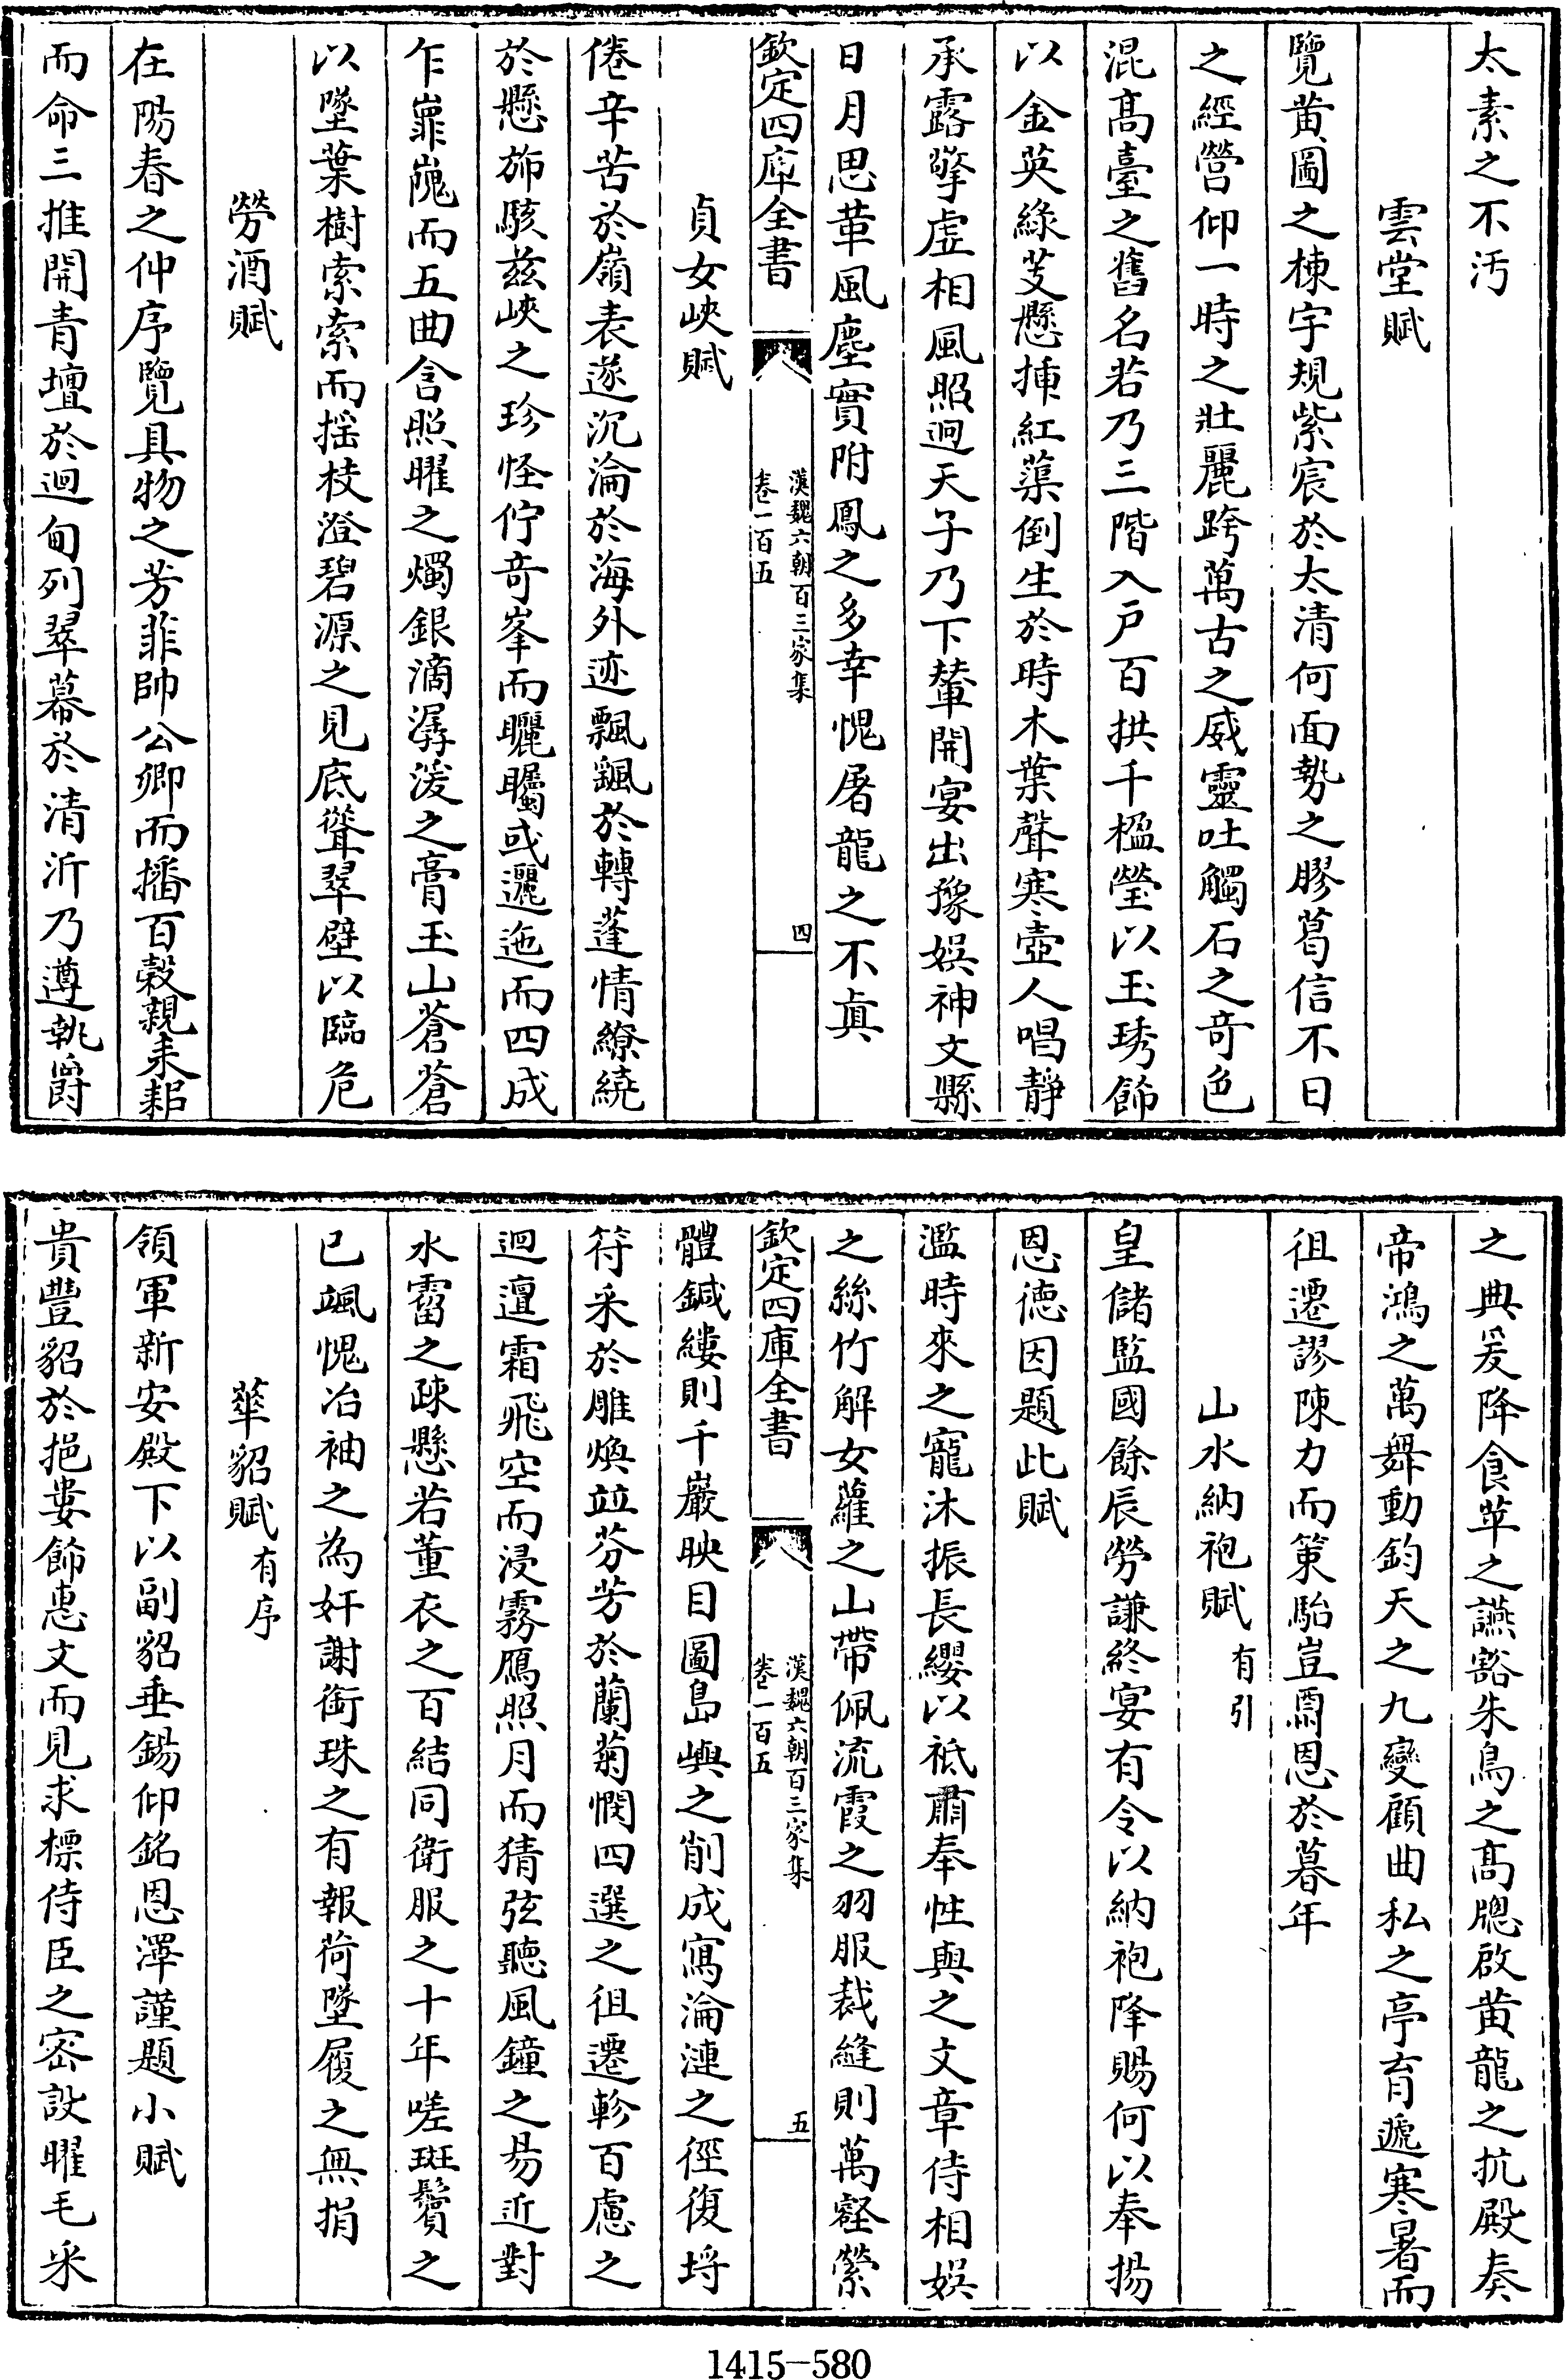 太素之不汚
雲堂賦
覽黄圖之棟宇規紫宸於太清何面勢之膠葛信不日
之經營仰一時之壯麗跨萬古之威靈吐觸石之竒色
混髙臺之舊名若乃三階入戸百拱千楹瑩以玉琇飾
以金英綠芰懸揷紅蕖倒生於時木葉聲寒壺人唱静
承露擎虚相風照迥天子乃下輦開宴出豫娱神文縣
日月思革風塵實附鳳之多幸愧屠龍之不真
欽定四庫全書
漢魏六朝百三家集
卷一百五
四
貞女峽賦
倦辛苦於嶺表遂沉淪於海外迹飄颻於轉蓬情繚繞
於懸斾駭兹峽之珍怪佇竒峯而曬矚或邐迤而四成
乍嶵嵬而五曲含照曜之燭銀滴潺湲之膏玉山蒼蒼
以墜葉樹索索而揺枝澄碧源之見底聳翠壁以臨危
勞酒賦
在陽春之仲序覽具物之芳菲帥公卿而播百榖親耒耜
而命三推開青壇於迴甸列翠幕於清沂乃遵執爵
之典爰降食苹之讌豁朱鳥之髙牕啟黄龍之抗殿奏
帝鴻之萬舞動鈞天之九變顧曲私之亭育遞寒暑而
徂遷謬陳力而策駘豈酬恩於暮年
山水納袍賦有引
皇儲監國餘辰勞謙終宴有令以納袍降賜何以奉揚
恩徳因題此賦
濫時來之寵沐振長纓以祗肅奉性與之文章侍相娱
之絲竹解女蘿之山帶佩流霞之羽服裁縫則萬壑縈
欽定四庫全書
漢魏六朝百三家集
卷一百五
五
體鍼縷則千巖映目圖島嶼之削成寫淪漣之徑復埒
符采於雕煥竝芬芳於蘭菊憫四選之徂遷軫百慮之
迴邅霜飛空而浸霧鴈照月而猜弦聽風鐘之易近對
水霤之疎懸若董衣之百結同衛服之十年嗟斑鬢之
已颯愧冶袖之為奸謝衘珠之有報荷墜履之無捐
華貂賦有序
領軍新安殿下以副貂垂錫仰銘恩澤謹題小賦
貴豐貂於挹婁飾惠文而見求標侍臣之密設曜毛采
1415-580